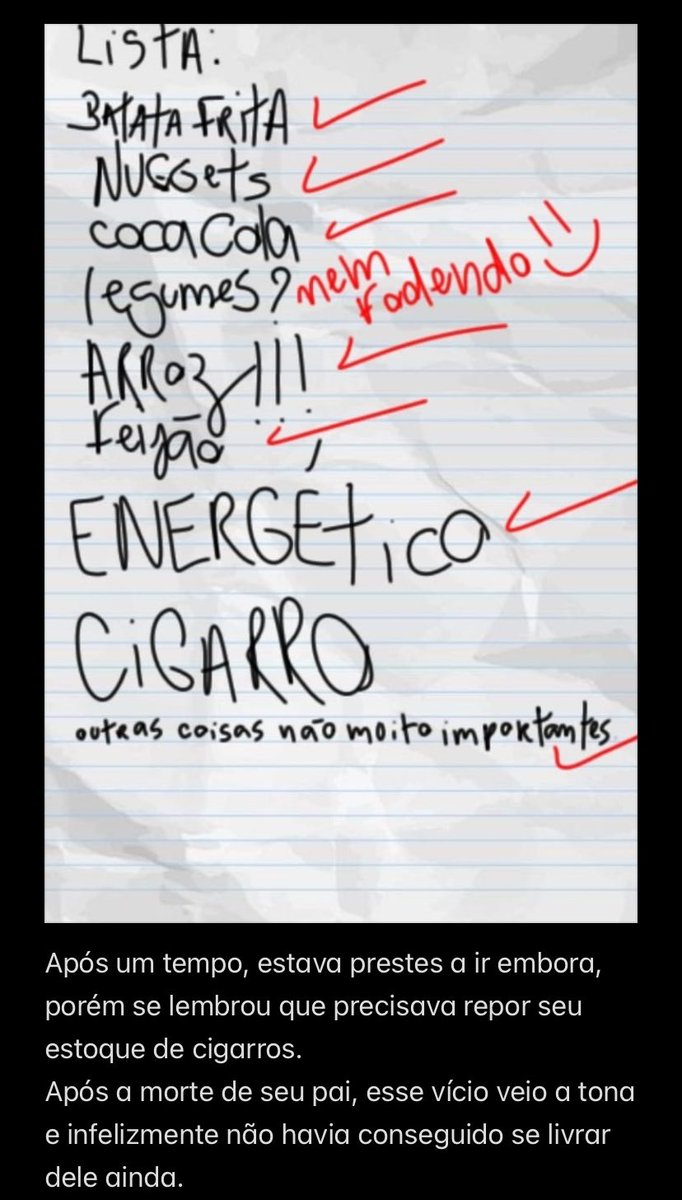 LiSTA:
BATATA FRitA
NUGGets
coca Cola
legumes? nem fodendo
ARROZ!!!
feijão
ENERGEtico
CiGARRO
outras coisas não moito importantes
Após um tempo, estava prestes a ir embora,
porém se lembrou que precisava repor seu
estoque de cigarros.
Após a morte de seu pai, esse vício veio a tona
e infelizmente não havia conseguido se livrar
dele ainda.